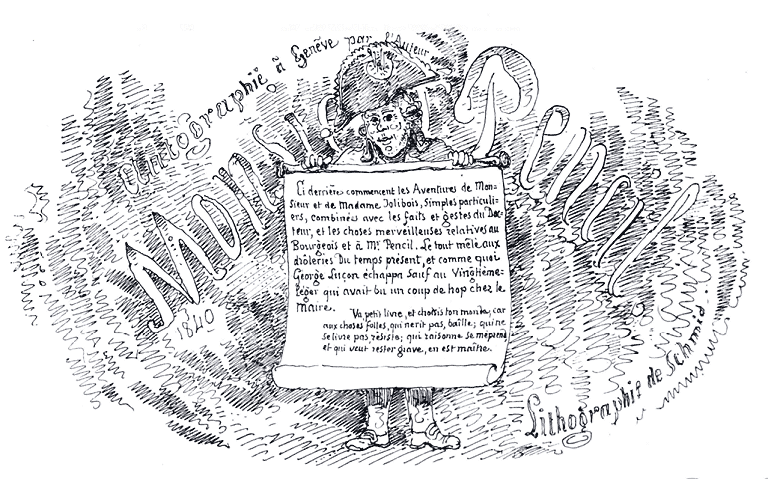 Autographié à Genève par l'Auteur
Monsieur Pencil
1840
Ci derrière commencent les Aventures de Mon-
sieur et de Madame Jolibois, simples particuli-
ers, combinées avec les faits et gestes du Doc-
teur, et les choses merveilleuses relatives au
Bourgeois et à Mr Pencil. Le tout mêlé aux
drôleries du temps présent, et comme quoi
George Luçon échappa sauf au Vingtième-
léger qui avait bu un coup de hop chez le
maire.
Va petit livre, et choisis ton monde, car
aux choses folles, qui ne rit pas, baille; qui ne
se livre pas, résiste; qui raisonne se méprend
et qui veut rester grave, en est maître.
Lithographie de Schmid.